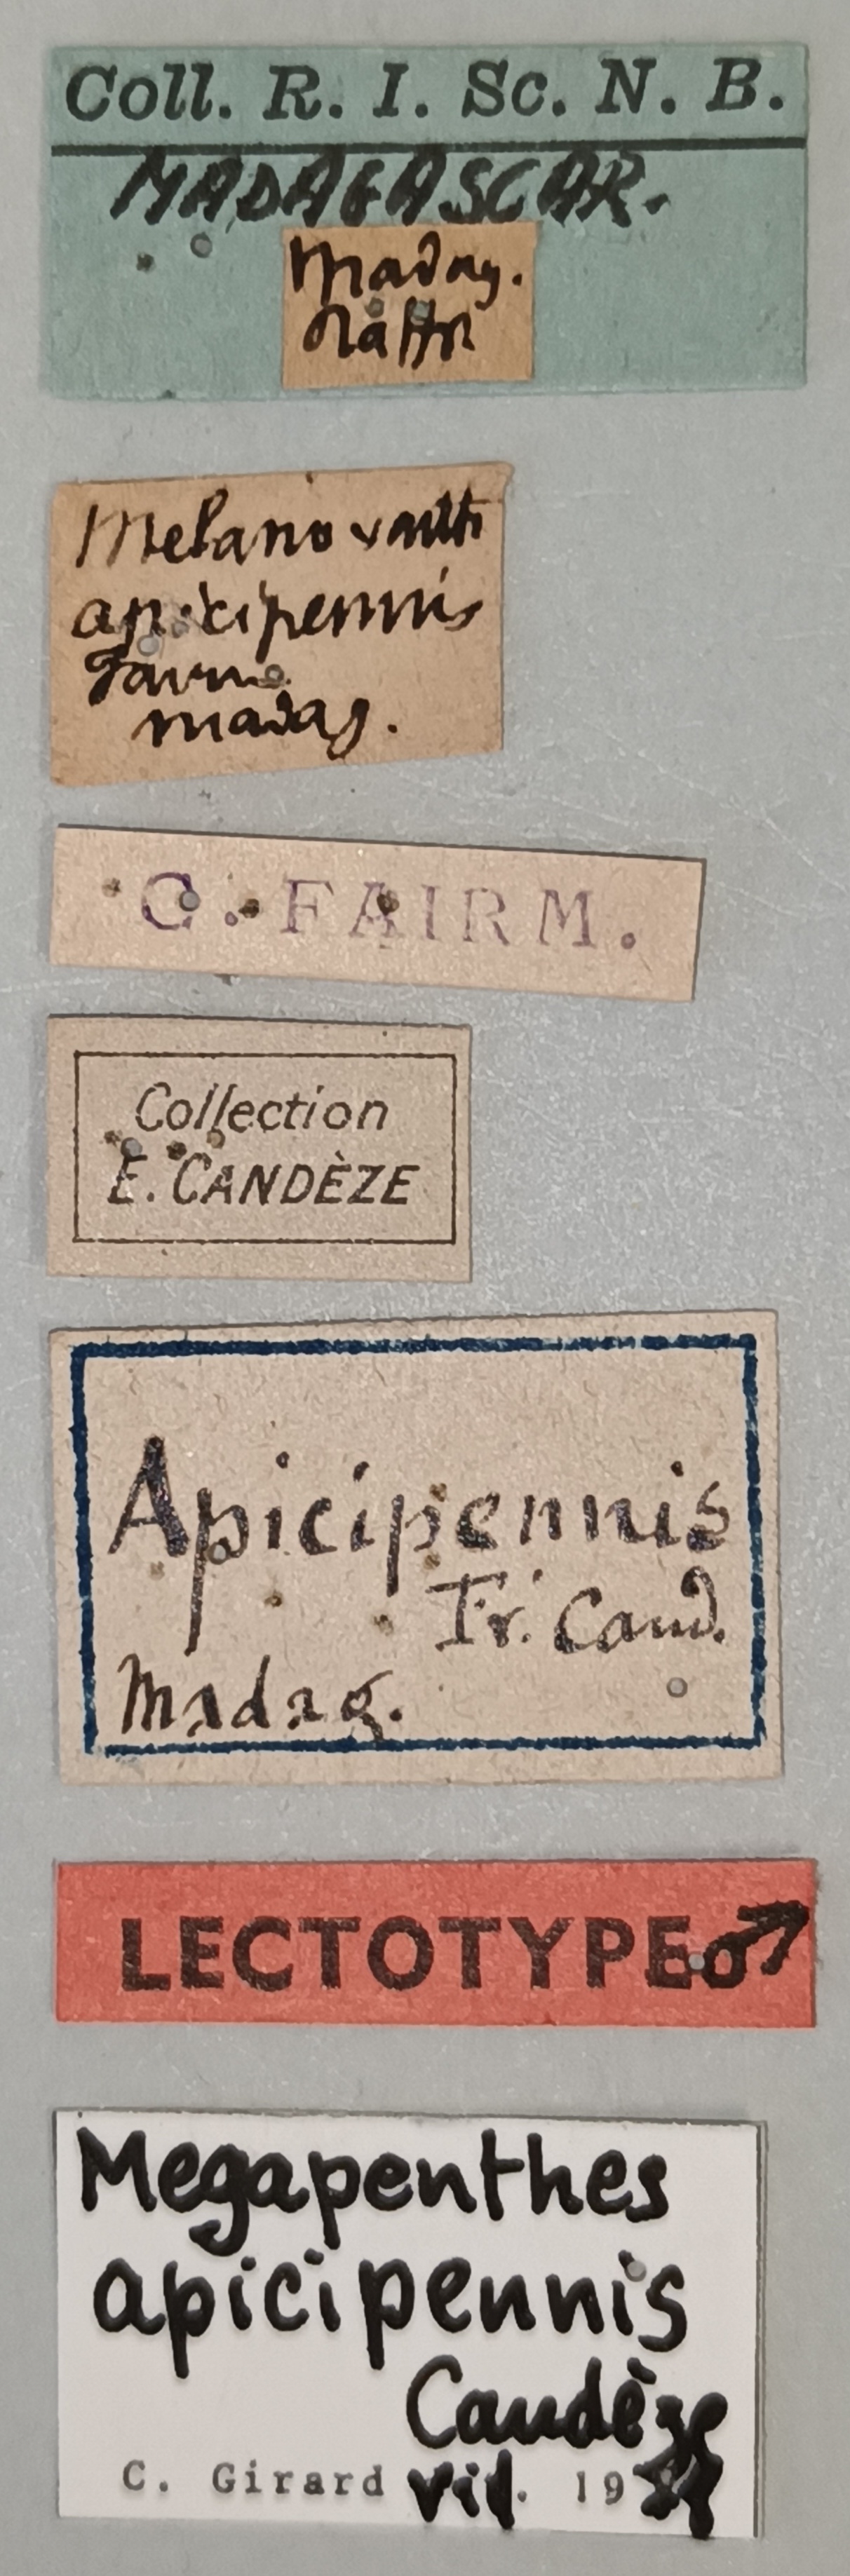 Coll. R. I. Sc. N. B.
MADAGASCAR.
Madag.
Melanoxanth
apicipennis
Fairm
madag.
C. FAIRM.
Collection
E. CANDÈZE
Apicipennis
Fr. Cand.
Madag.
LECTOTYPE ♂
Megapenthes
apicipennis
Candèze
C. Girard vid. 19